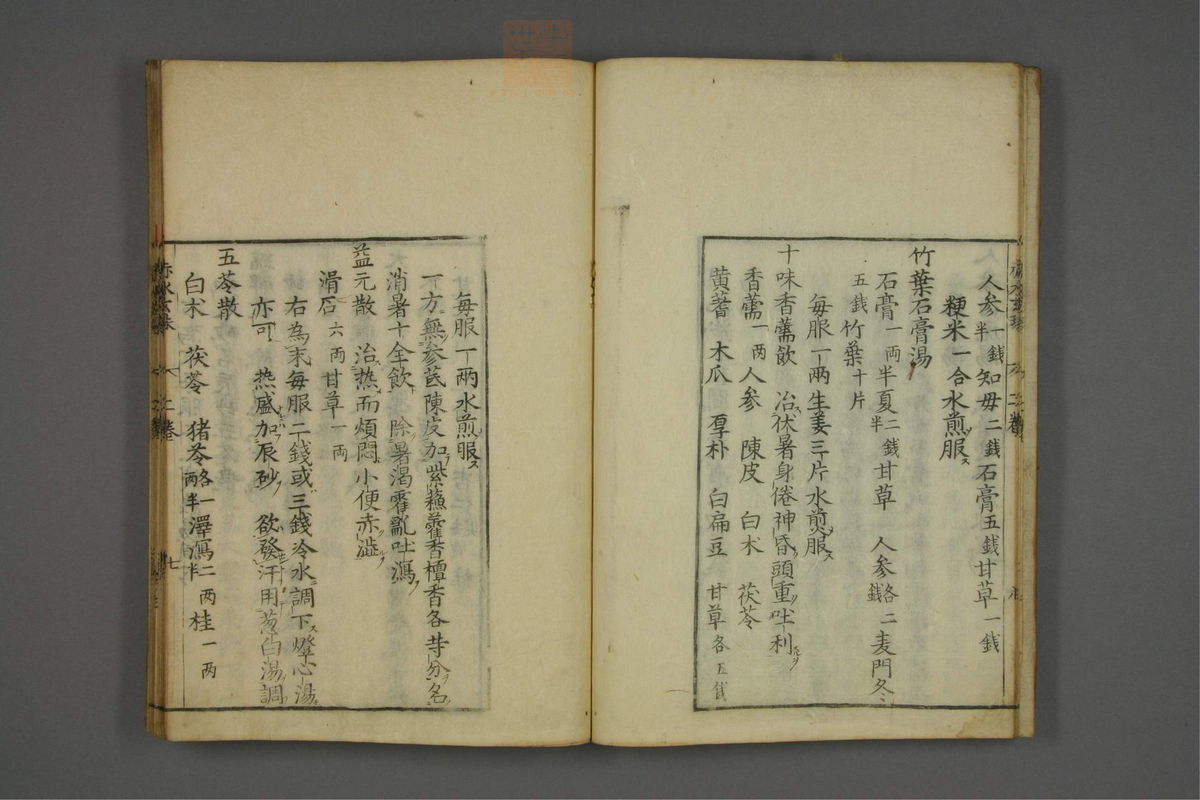 人参一銭半知毋二銭石膏五銭甘草一銭
粳米一合水煎服ス
竹葉石膏湯
石膏一両半夏二銭半甘草人参各二銭麦門冬
五銭竹葉十片
毎服一両生姜三片水煎服ス
十味香薷飲 治伏暑身倦神昏頭重吐利
香薷一两人参 陳皮 白朮 茯苓
黄耆 木瓜 厚朴 白扁豆 甘草各五銭
毎服一两水煎服ス
一方無参芪陳皮加紫蘓藿香檀香各等分名
消暑十全飲 除暑渇霍亂吐瀉
益元散 治热而煩悶小便赤澁
滑石六两甘草一两
右為末毎服二銭或三銭冷水調下燈心湯
亦可 热盛加辰砂 欲發汗用葱白湯調
五苓散
白朮 茯苓 猪苓各一两半澤瀉二两半桂一两
二卷
七